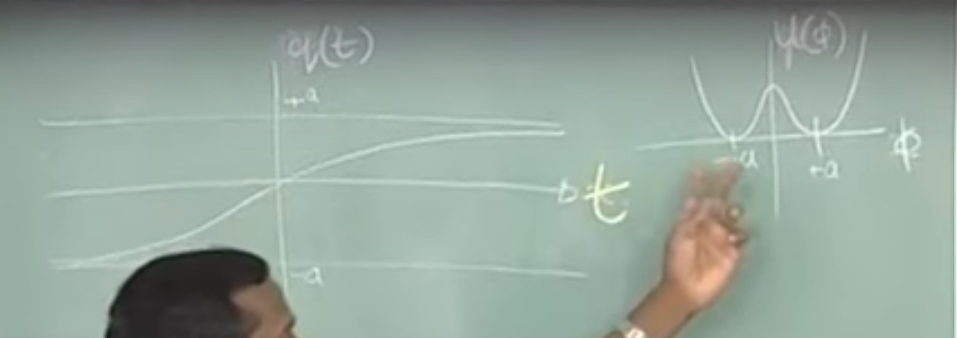 q(t)
+a
t
-a
V(ϕ)
-a
+a
ϕ